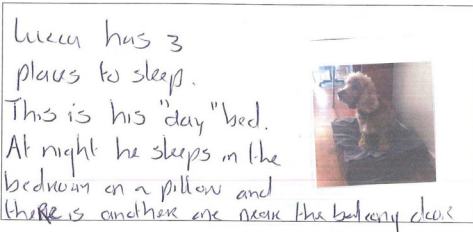 Lucca has 3
places to sleep.
This is his "day" bed.
At night he sleeps in the
bedroom on a pillow and
there is another one near the balcony door